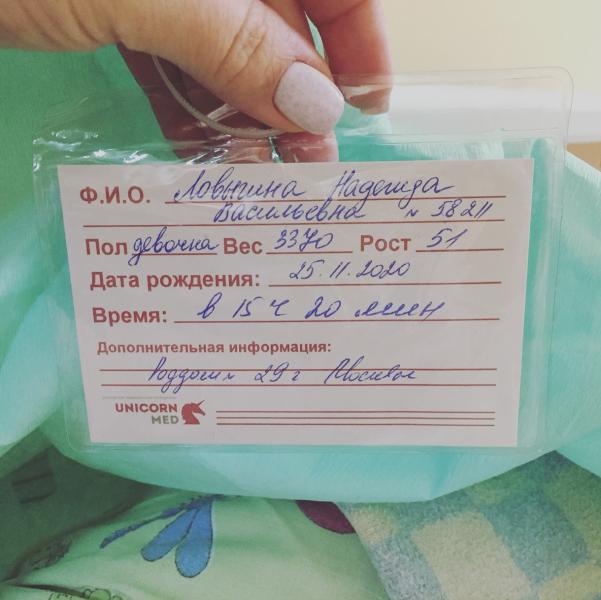 Ф.И.О. Ловыгина Надежда
Васильевна № 58211
Пол девочка Вес 3370 Рост 51
Дата рождения: 25.11.2020
Время: в 15 ч 20 мин
Дополнительная информация:
Роддом № 29 г Москва
UNICORN
MED